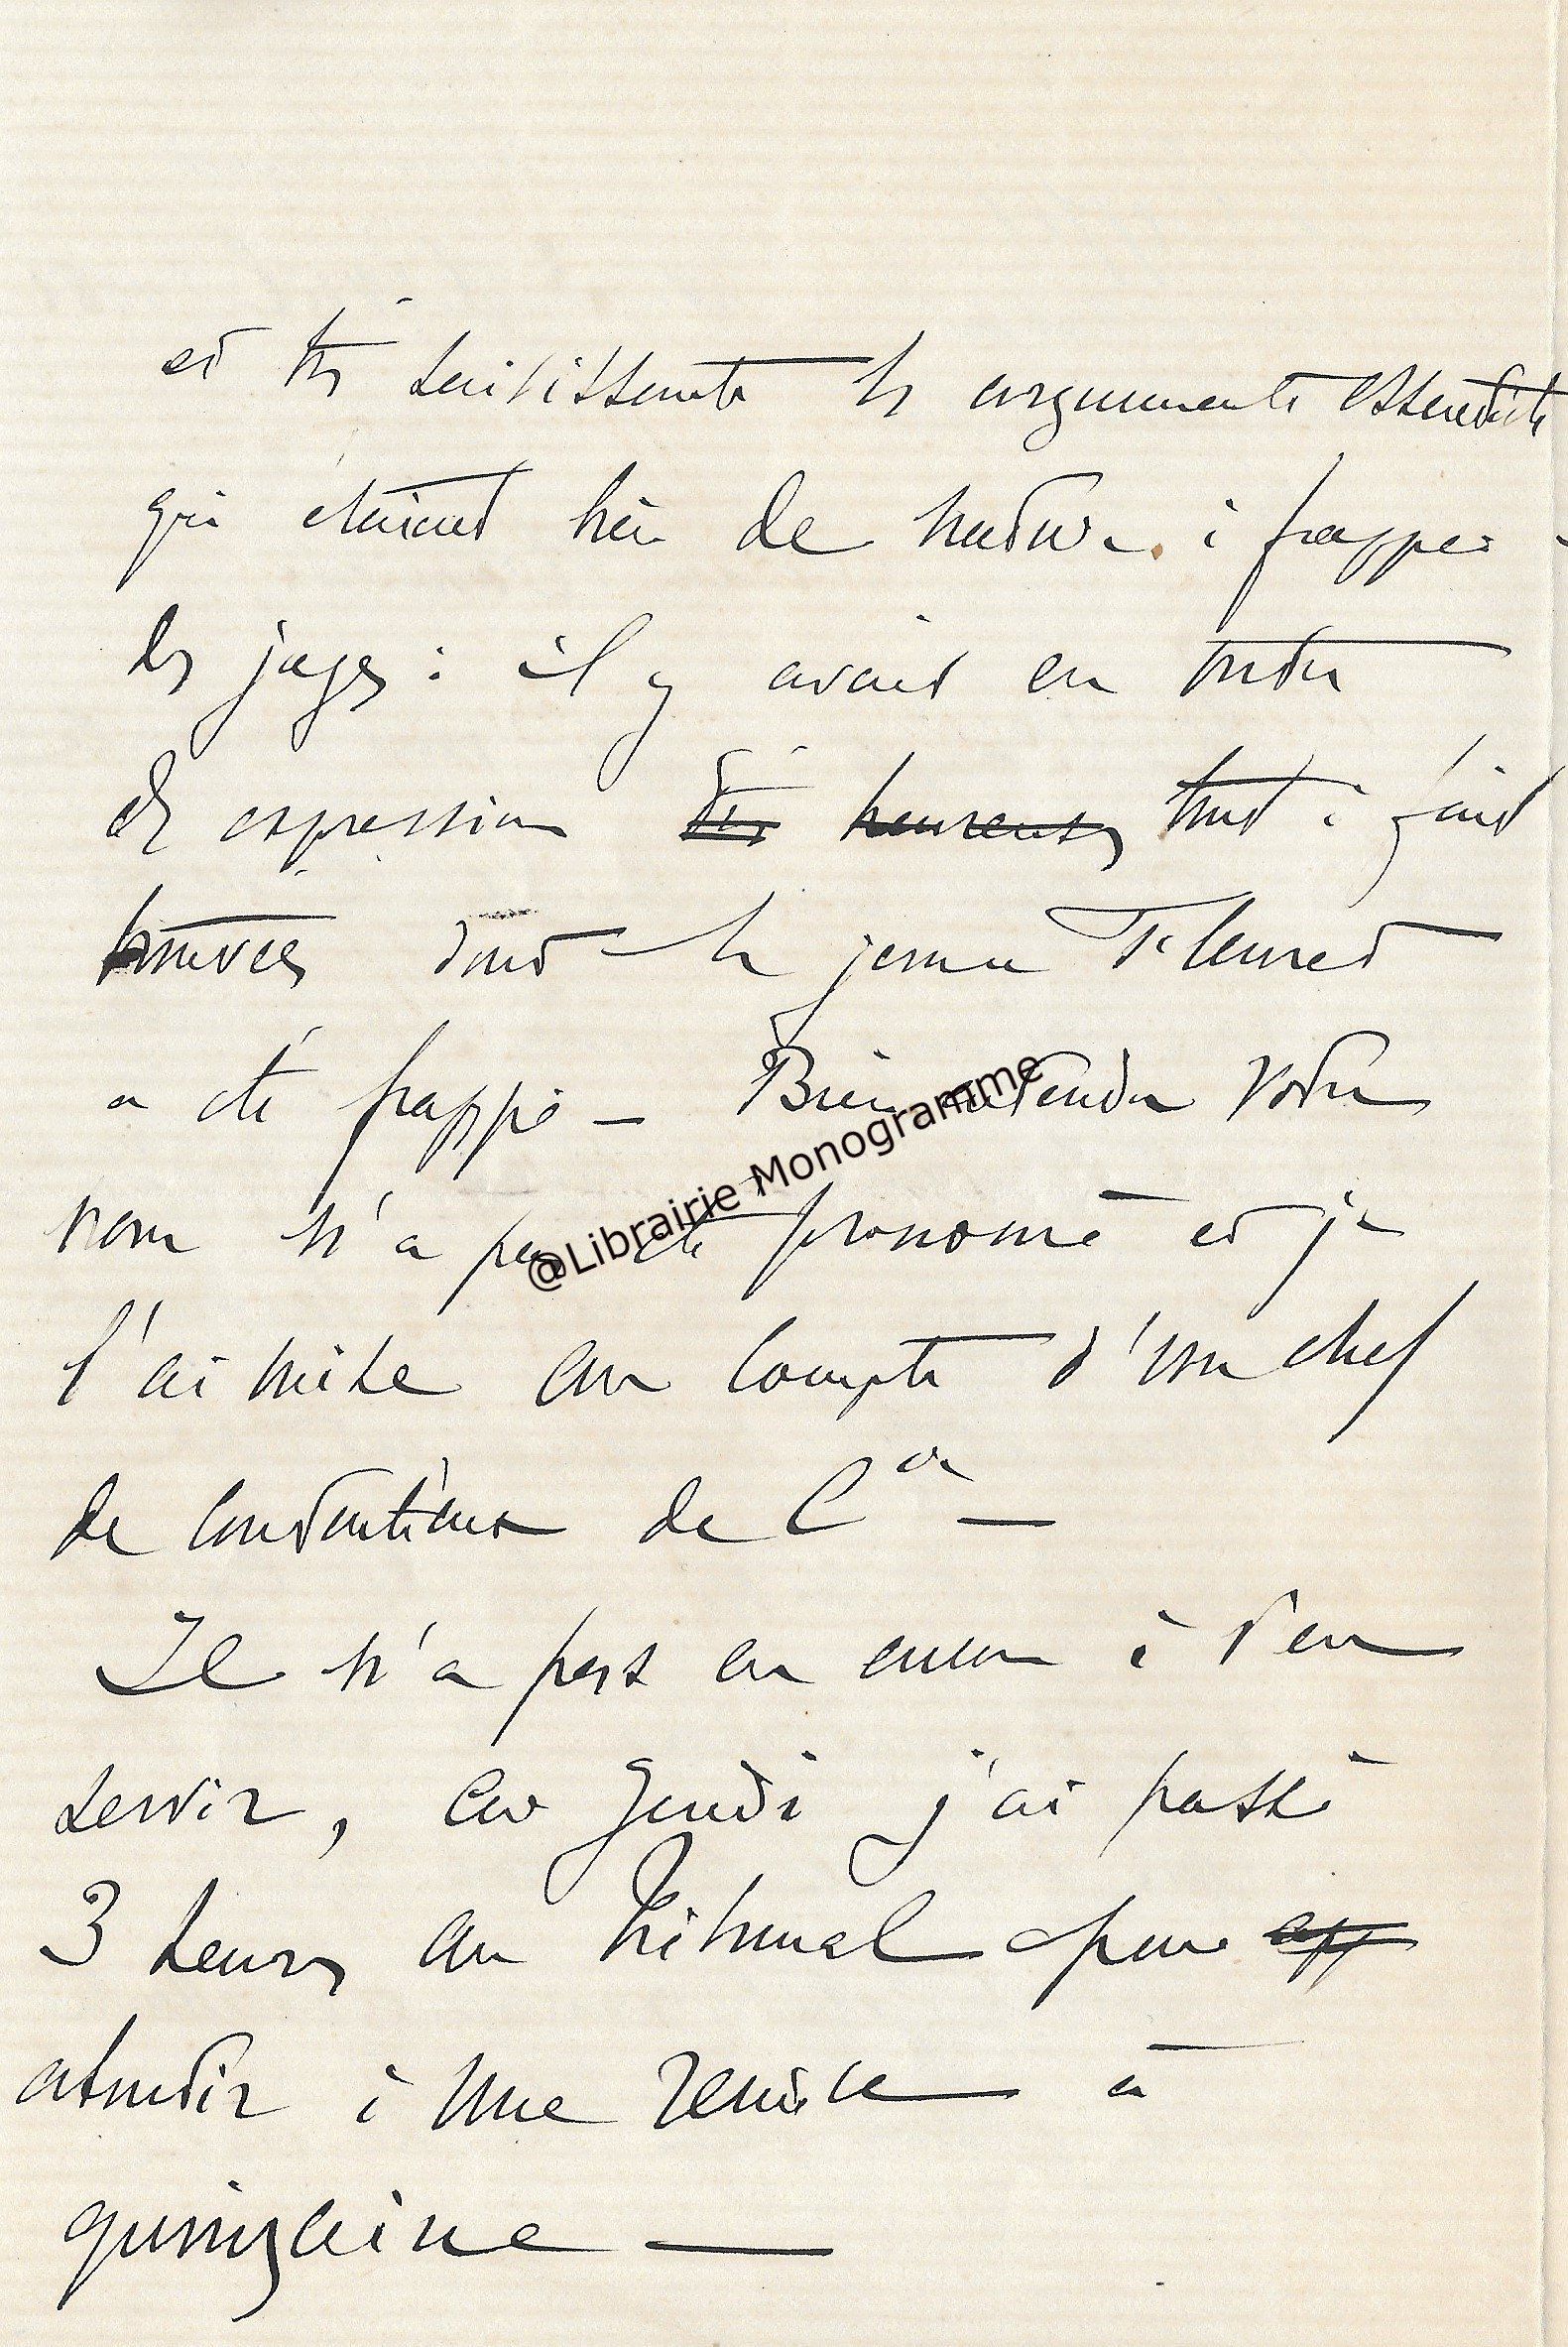 et très saisissante les arguments essentiels
qui étaient bien de nature à frapper
les juges : il y avait en outre
des expressions très heureuses tout à fait
trouvées dont le jeune Fleuret
a été frappé — Bien entendu votre
nom n'a pas été prononcé et je
l'ai mise au compte d'un chef
de contentieux de Cie —
Il n'a pas eu encore à s'en
servir, car Jeudi j'ai passé
3 heures au tribunal pour
aboutir à une remise à
quinzaine —
@Librairie Monogramme